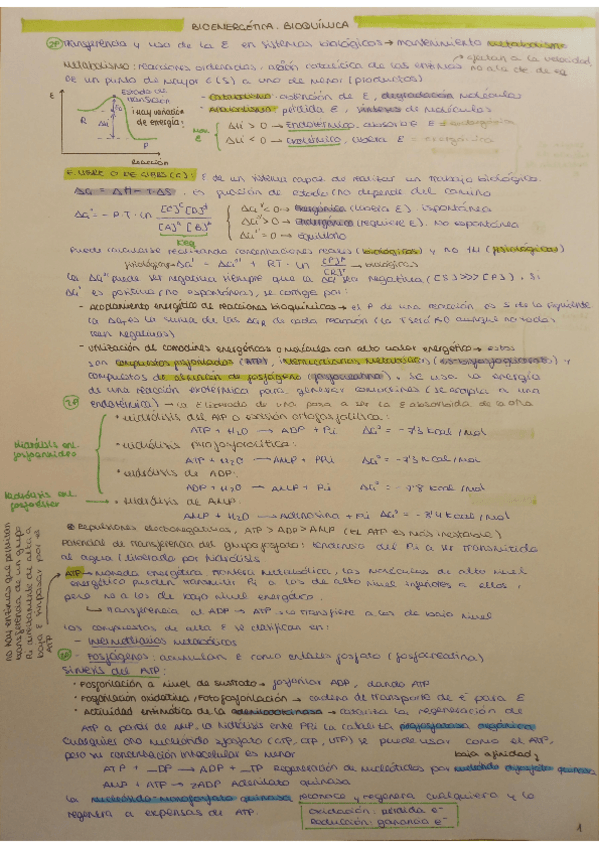 BIOENERGÉTICA. BIOQUÍMICA
Transferencia y uso de la E en sistemas biológicos → mantenimiento metabolismo
Metabolismo: reacciones ordenadas, acción catalítica de las enzimas
→ afectan a la velocidad, no a la de
de un punto de mayor E (S) a uno de menor (productos)
E
Estado de transición
¡Hay variación de energía!
R
P
Reacción
- Catabolismo: obtención de E, degradación moléculas
- Anabolismo: pérdida E, síntesis de moléculas
ΔH > 0 → Endotérmico, absorbe E
ΔH < 0 → Exotérmico, libera E
E. LIBRE O DE GIBBS (G): E de un sistema capaz de realizar un trabajo biológico.
ΔG = ΔH - T·ΔS. Es función de estado (no depende del camino
Keq
< 0 → exergónica (libera E), espontánea
> 0 → Endergónica (requiere E), no espontánea
= 0 → equilibrio
Puede calcularse realizando concentraciones reales (biológicas) y no (fisiológicas)
La ΔG puede ser negativa siempre que la ΔG sea negativa ([S]>>>[P]). Si
ΔG° es positiva (no espontánea), se corrige por:
- Acoplamiento energético de reacciones bioquímicas → el P de una reacción es S de la siguiente.
La es la suma de las de cada reacción (la T será <0 aunque no todas
sean negativas)
- Utilización de comodines energéticos o moléculas con alto valor energético → estos
son compuestos fosforilados (ATP), intermediarios metabólicos y
compuestos de almacén de fosfágeno (fosfocreatina). Se usa la energía
de una reacción exotérmica para generar comodines (se acopla a una
endotérmica) → la E liberada de una pasa a ser la E absorbida de la otra
Hidrólisis enl. fosfoanhidro
• Hidrólisis del ATP o escisión ortofosfolítica:
ATP + H₂O → ADP + Pi ΔG° = -7'3 kcal/mol
• Hidrólisis pirofosfolítica:
ATP + H₂O → AMP + PPi ΔG° = -7'3 kcal/mol
• Hidrólisis de ADP:
ADP + H₂O → AMP + Pi ΔG° = -7'8 kcal/mol
Hidrólisis enl. fosfoéster
• Hidrólisis de AMP:
AMP + H₂O → Adenosina + Pi
Repulsiones electronegativas, ATP > ADP > AMP (el ATP es más inestable)
Potencial de transferencia del grupo fosfato: tendencia del Pi a ser transmitido
al agua (liberado por hidrólisis
No hay enzimas que permitan transferencia de un grupo directamente de alta a baja E, tiene que pasar por el ATP
ATP → moneda energética frontera metabólica, las moléculas de alto nivel
energético pueden transmitir Pi a los de alto nivel inferiores a ellos,
pero no a los de bajo nivel energético.
↳ Transferencia al ADP → ATP. Lo transfiere a los de bajo nivel
Los compuestos de alta E se clasifican en:
- Intermediarios metabólicos
- Fosfágenos: acumulan E como enlaces fosfato (fosfocreatina)
Síntesis del ATP:
• Fosforilación a nivel de sustrato → fosforilar ADP, dando ATP
• Fosforilación oxidativa / Fotofosforilación → cadena de transporte de e⁻ para E
• Actividad enzimática de la adenilatoquinasa → cataliza la regeneración de
ATP a partir de AMP. La hidrólisis ente PPi la cataliza pirofosfatasa orgánica
Cualquier otro nucleósido 3fosfato (GTP, CTP, UTP) se puede usar como el ATP,
pero su concentración intracelular es menor
baja afinidad
ATP + _DP → ADP + _TP Regeneración de nucleótidos por nucleósido difosfato quinasa
AMP + ATP → 2ADP Adenilato quinasa
La nucleósido monofosfato quinasa reconoce y regenera cualquiera y lo
regenera a expensas de ATP.
Oxidación: pérdida e⁻
Reducción: ganancia e⁻
1